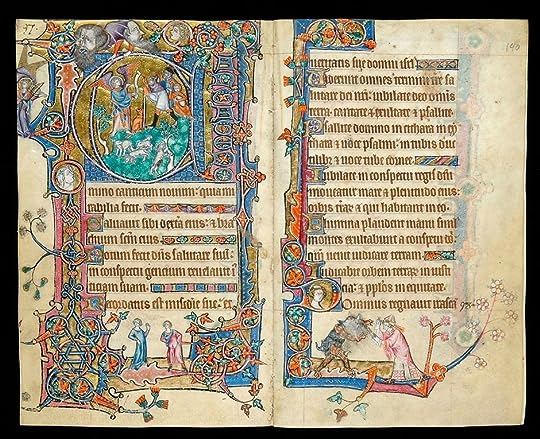 97.
mino canticum nouum: quia mi
rabilia fecit.
Saluauit sibi dextera eius: & bra
chium scm eius
Notum fecit dns salutare suu:
in conspectu gencium reuelauit
iusticiam suam.
Recordatus est miscdie sue: et
190
ueritatis sue domui isrl
Uiderunt omnes termini terre sa
lutare dei nri: iubilate deo omis
terra: cantate & exultate & psallite
Psallite domino in cithara in cy
thara & uoce psalmi: in tubis duc
tilibz & uoce tube cornee.
Iubilate in conspectu regis dni:
moueatur mare & plenitudo eius:
orbis trar & qui habitant in eo
Flumina plaudent manu simul
montes exultabunt a conspectu dni:
qm uenit iudicare terram.
Iudicabit orbem terrar in iusti
cia: & pplos in equitate.
Dominus regnauit irascant